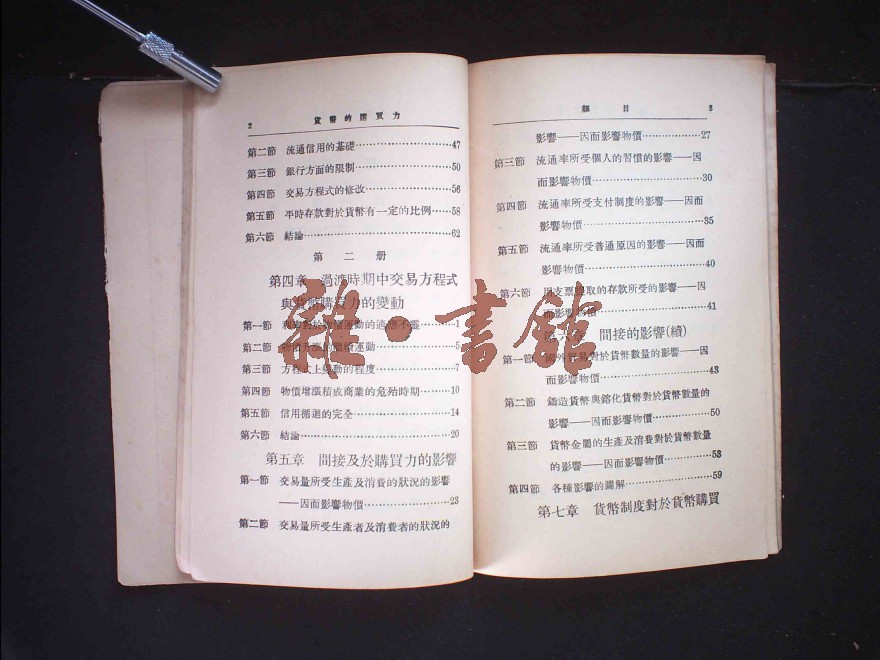 2 貨幣的購買力
第二節 流通信用的基礎……47
第三節 銀行方面的限制……50
第四節 交易方程式的修改……56
第五節 平時存款對於貨幣有一定的比例……58
第六節 結論……62
第二册
第四章 過渡時期中交易方程式
與貨幣購買力的變動
第一節 利率對於物價運動的適應不靈……1
第二節 物價升漲的繼續運動……5
第三節 方程式上變動的程度……7
第四節 物價增漲積成商業的危殆時期……10
第五節 信用循迴的完全……14
第六節 結論……20
第五章 間接及於購買力的影響
第一節 交易量所受生產及消費的狀況的影響
——因而影響物價……23
第二節 交易量所受生產者及消費者的狀況的
細目 3
影響——因而影響物價……27
第三節 流通率所受個人的習慣的影響——因
而影響物價……30
第四節 流通率所受支付制度的影響——因而
影響物價……35
第五節 流通率所受普通原因的影響——因而
影響物價……40
第六節 用支票提取的存款所受的影響——因
而影響物價……41
第六章 間接的影響(續)
第一節 國外貿易對於貨幣數量的影響——因
而影響物價……43
第二節 鑄造貨幣與鎔化貨幣對於貨幣數量的
影響——因而影響物價……50
第三節 貨幣金屬的生產及消費對於貨幣數量
的影響——因而影響物價……53
第四節 各種影響的圖解……59
第七章 貨幣制度對於貨幣購買
雜·書館